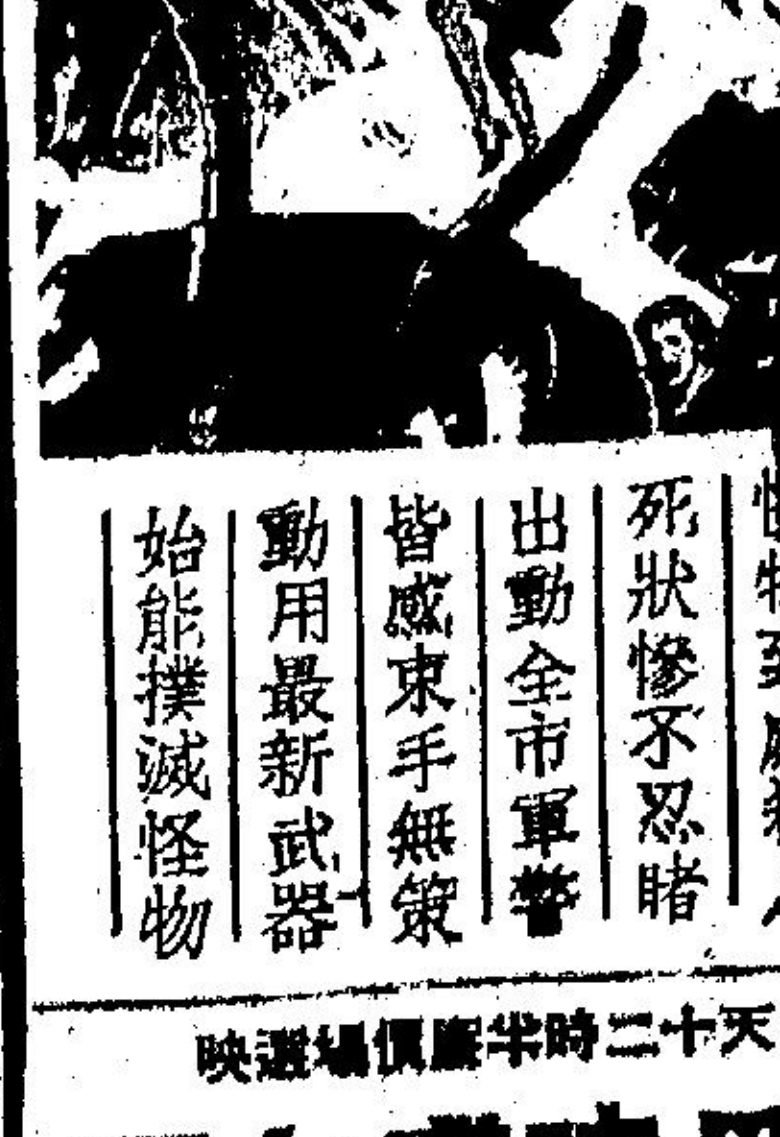 死狀慘不忍睹
出動全市軍警
皆感束手無策
動用最新武器
始能撲滅怪物
天十二時半廉價場選映